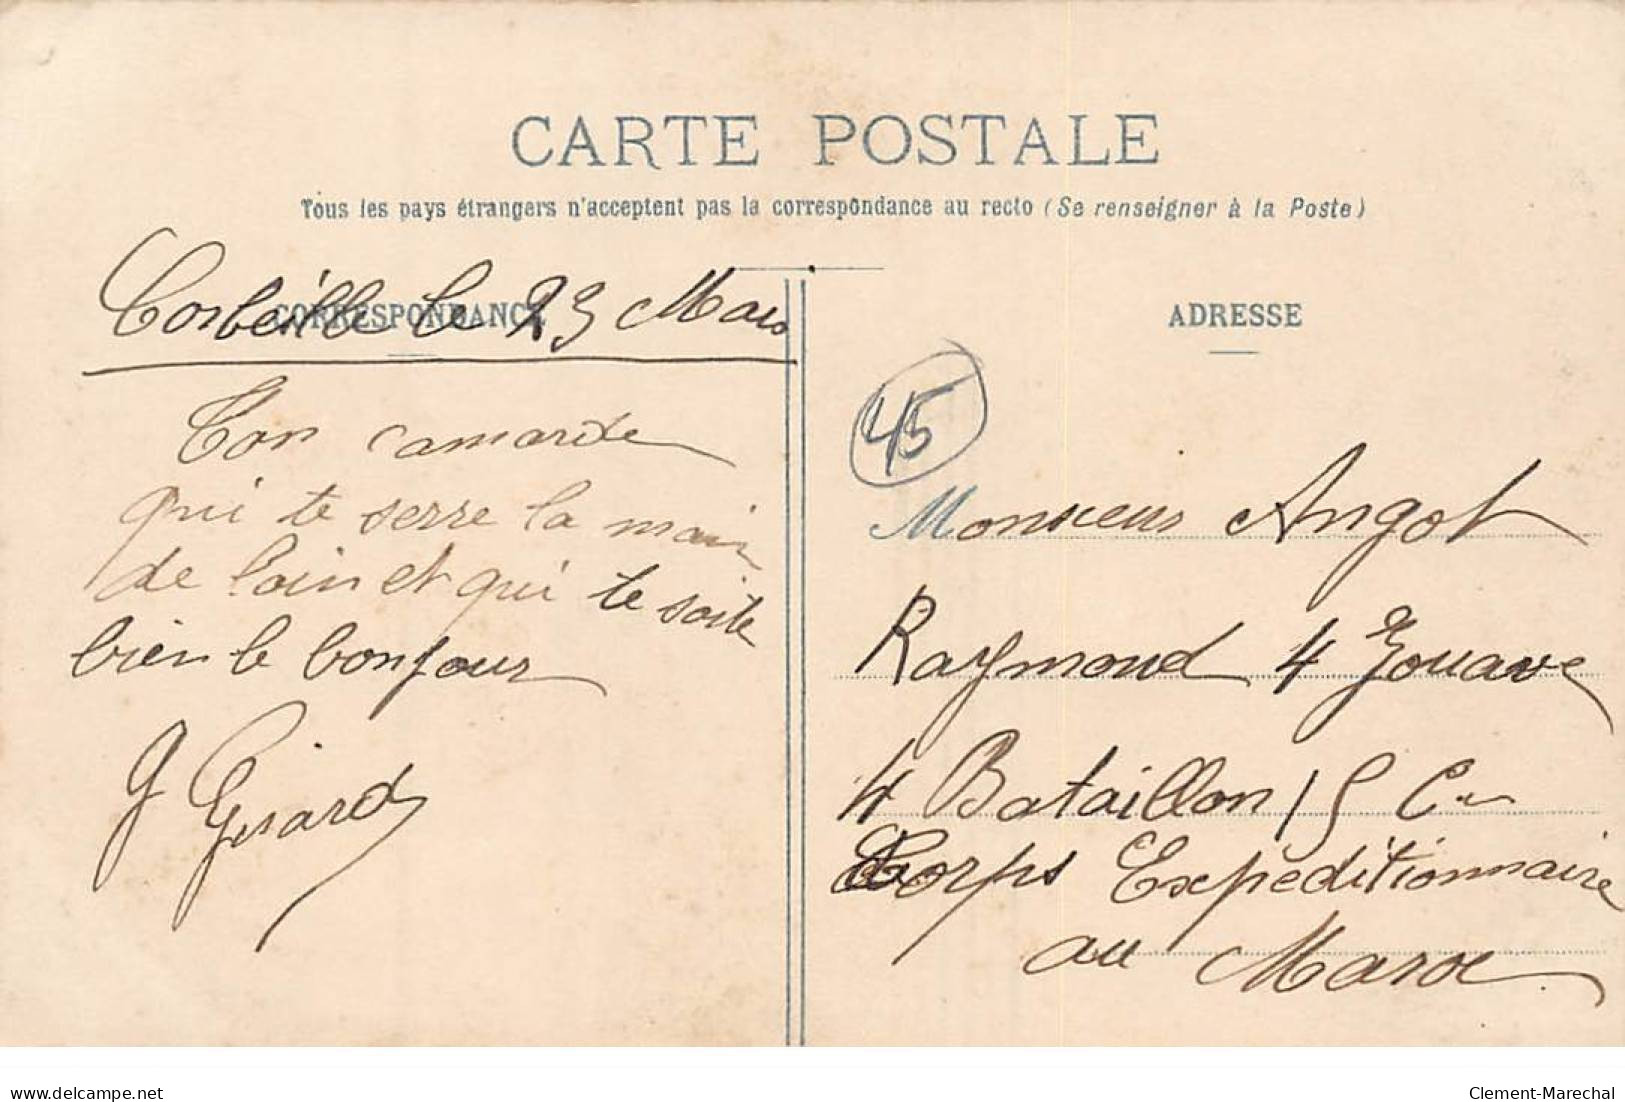 CARTE POSTALE
Tous les pays étrangers n'acceptent pas la correspondance au recto (Se renseigner à la Poste)
CORRESPONDANCE
Corbeille le 23 Mars
Ton camarde
qui te serre la main
de loin et qui te soite
bien le bonjour
G Girard
ADRESSE
45
Monsieur Angot
Raymond 4 Zouave
4 Bataillon 15 Cie
Corps Expéditionnaire
au Maroc
delcampe.net
Clement-Marechal